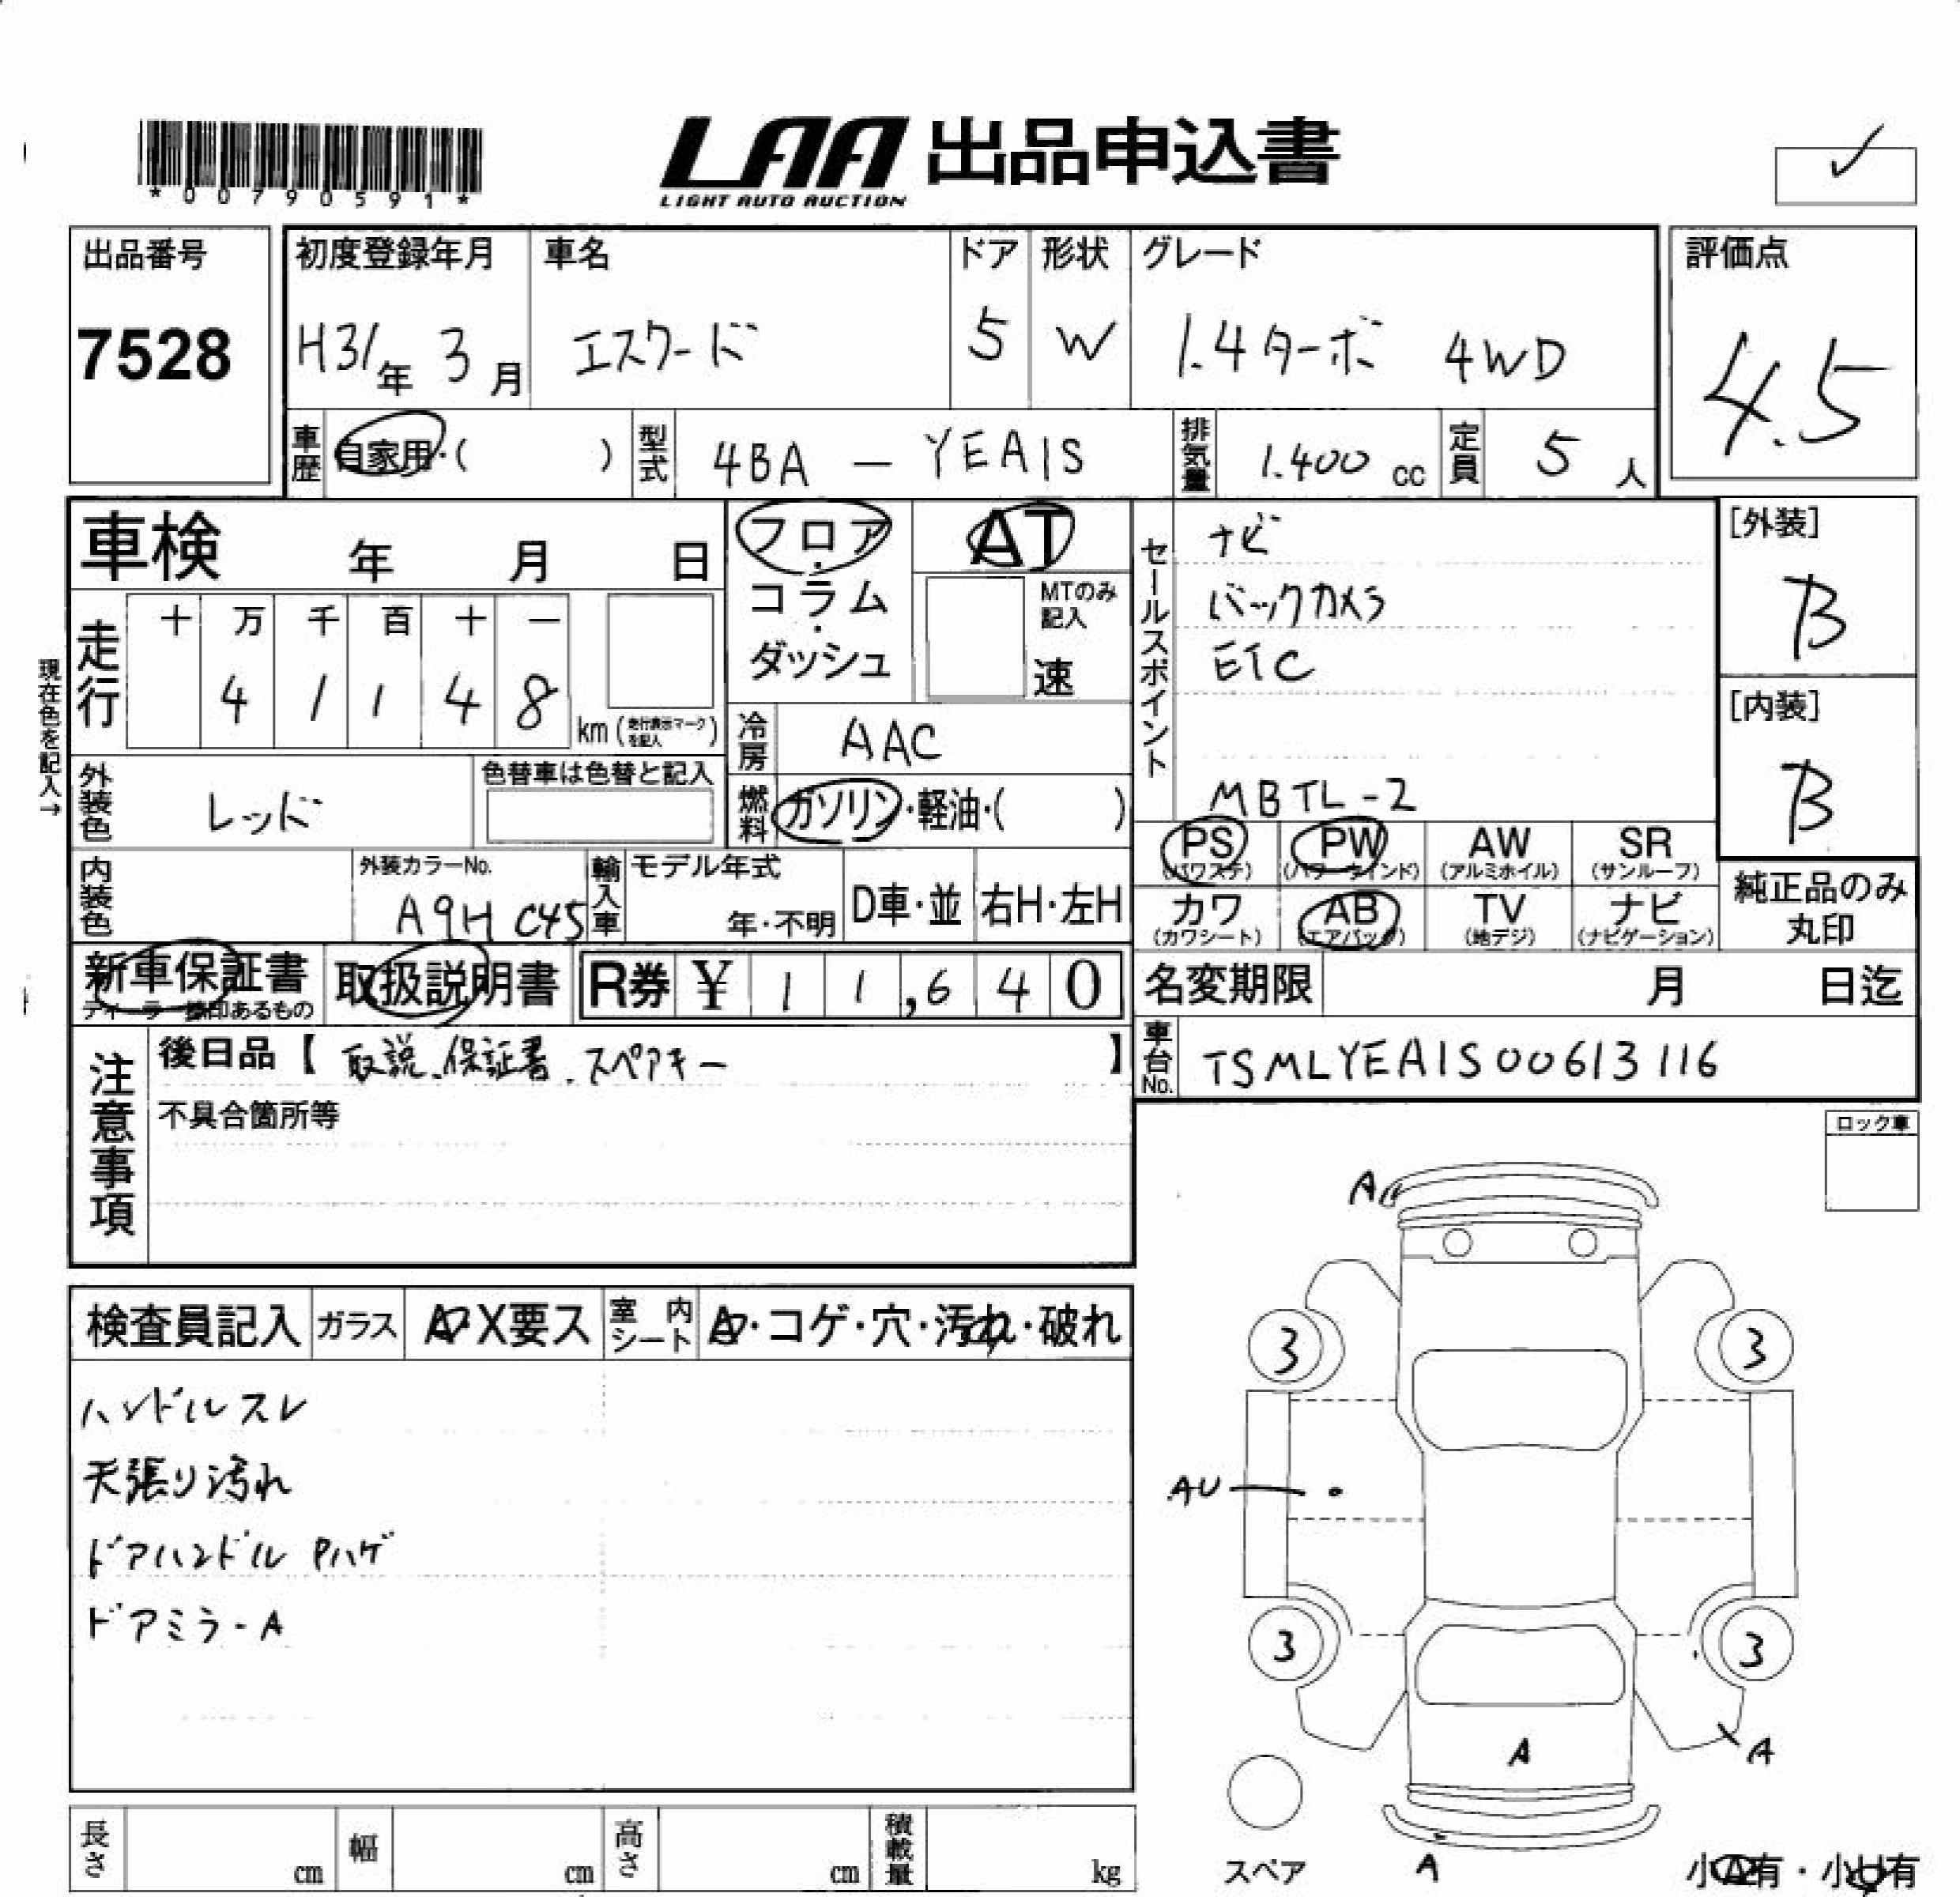 *00790591*
LAA 出品申込書
LIGHT AUTO AUCTION
✓
出品番号
7528
初度登録年月
H31年 3月
車名
エスクード
ドア
5
形状
W
グレード
1.4ターボ 4WD
評価点
4.5
車歴
自家用・( )
型式
4BA - YEA1S
排気量
1.400 cc
定員
5 人
車検 年 月 日
走行
十 万 千 百 十 一
4 1 1 4 8
km (走行表示マークを記入)
現在色を記入→
外装色
レッド
色替車は色替と記入
内装色
外装カラーNo.
A9H C45
フロア・
コラム・
ダッシュ
AT
MTのみ記入
速
冷房
AAC
燃料
ガソリン・軽油・( )
輸入車
モデル年式
年・不明
D車・並
右H・左H
セールスポイント
ナビ
バックカメラ
ETC
MBTL-2
[外装]
B
[内装]
B
PS
(パワステ)
PW
(パワーウインド)
AW
(アルミホイル)
SR
(サンルーフ)
カワ
(カワシート)
AB
(エアバッグ)
TV
(地デジ)
ナビ
(ナビゲーション)
純正品のみ
丸印
新車保証書
ディーラー捺印あるもの
取扱説明書
R券 ¥ 1 1,6 4 0
名変期限 月 日迄
車台No.
TSMLYEA1S00613116
注意事項
後日品【 取説、保証書、スペアキー 】
不具合箇所等
ロック車
検査員記入
ガラス
A・X要ス
室内シート
A・コゲ・穴・汚れ・破れ
ハンドルスレ
天張り汚れ
ドアハンドル Pハゲ
ドアミラーA
A
3
3
AU
3
3
A
A
A
スペア
小A有・小U有
長さ cm
幅 cm
高さ cm
積載量 kg